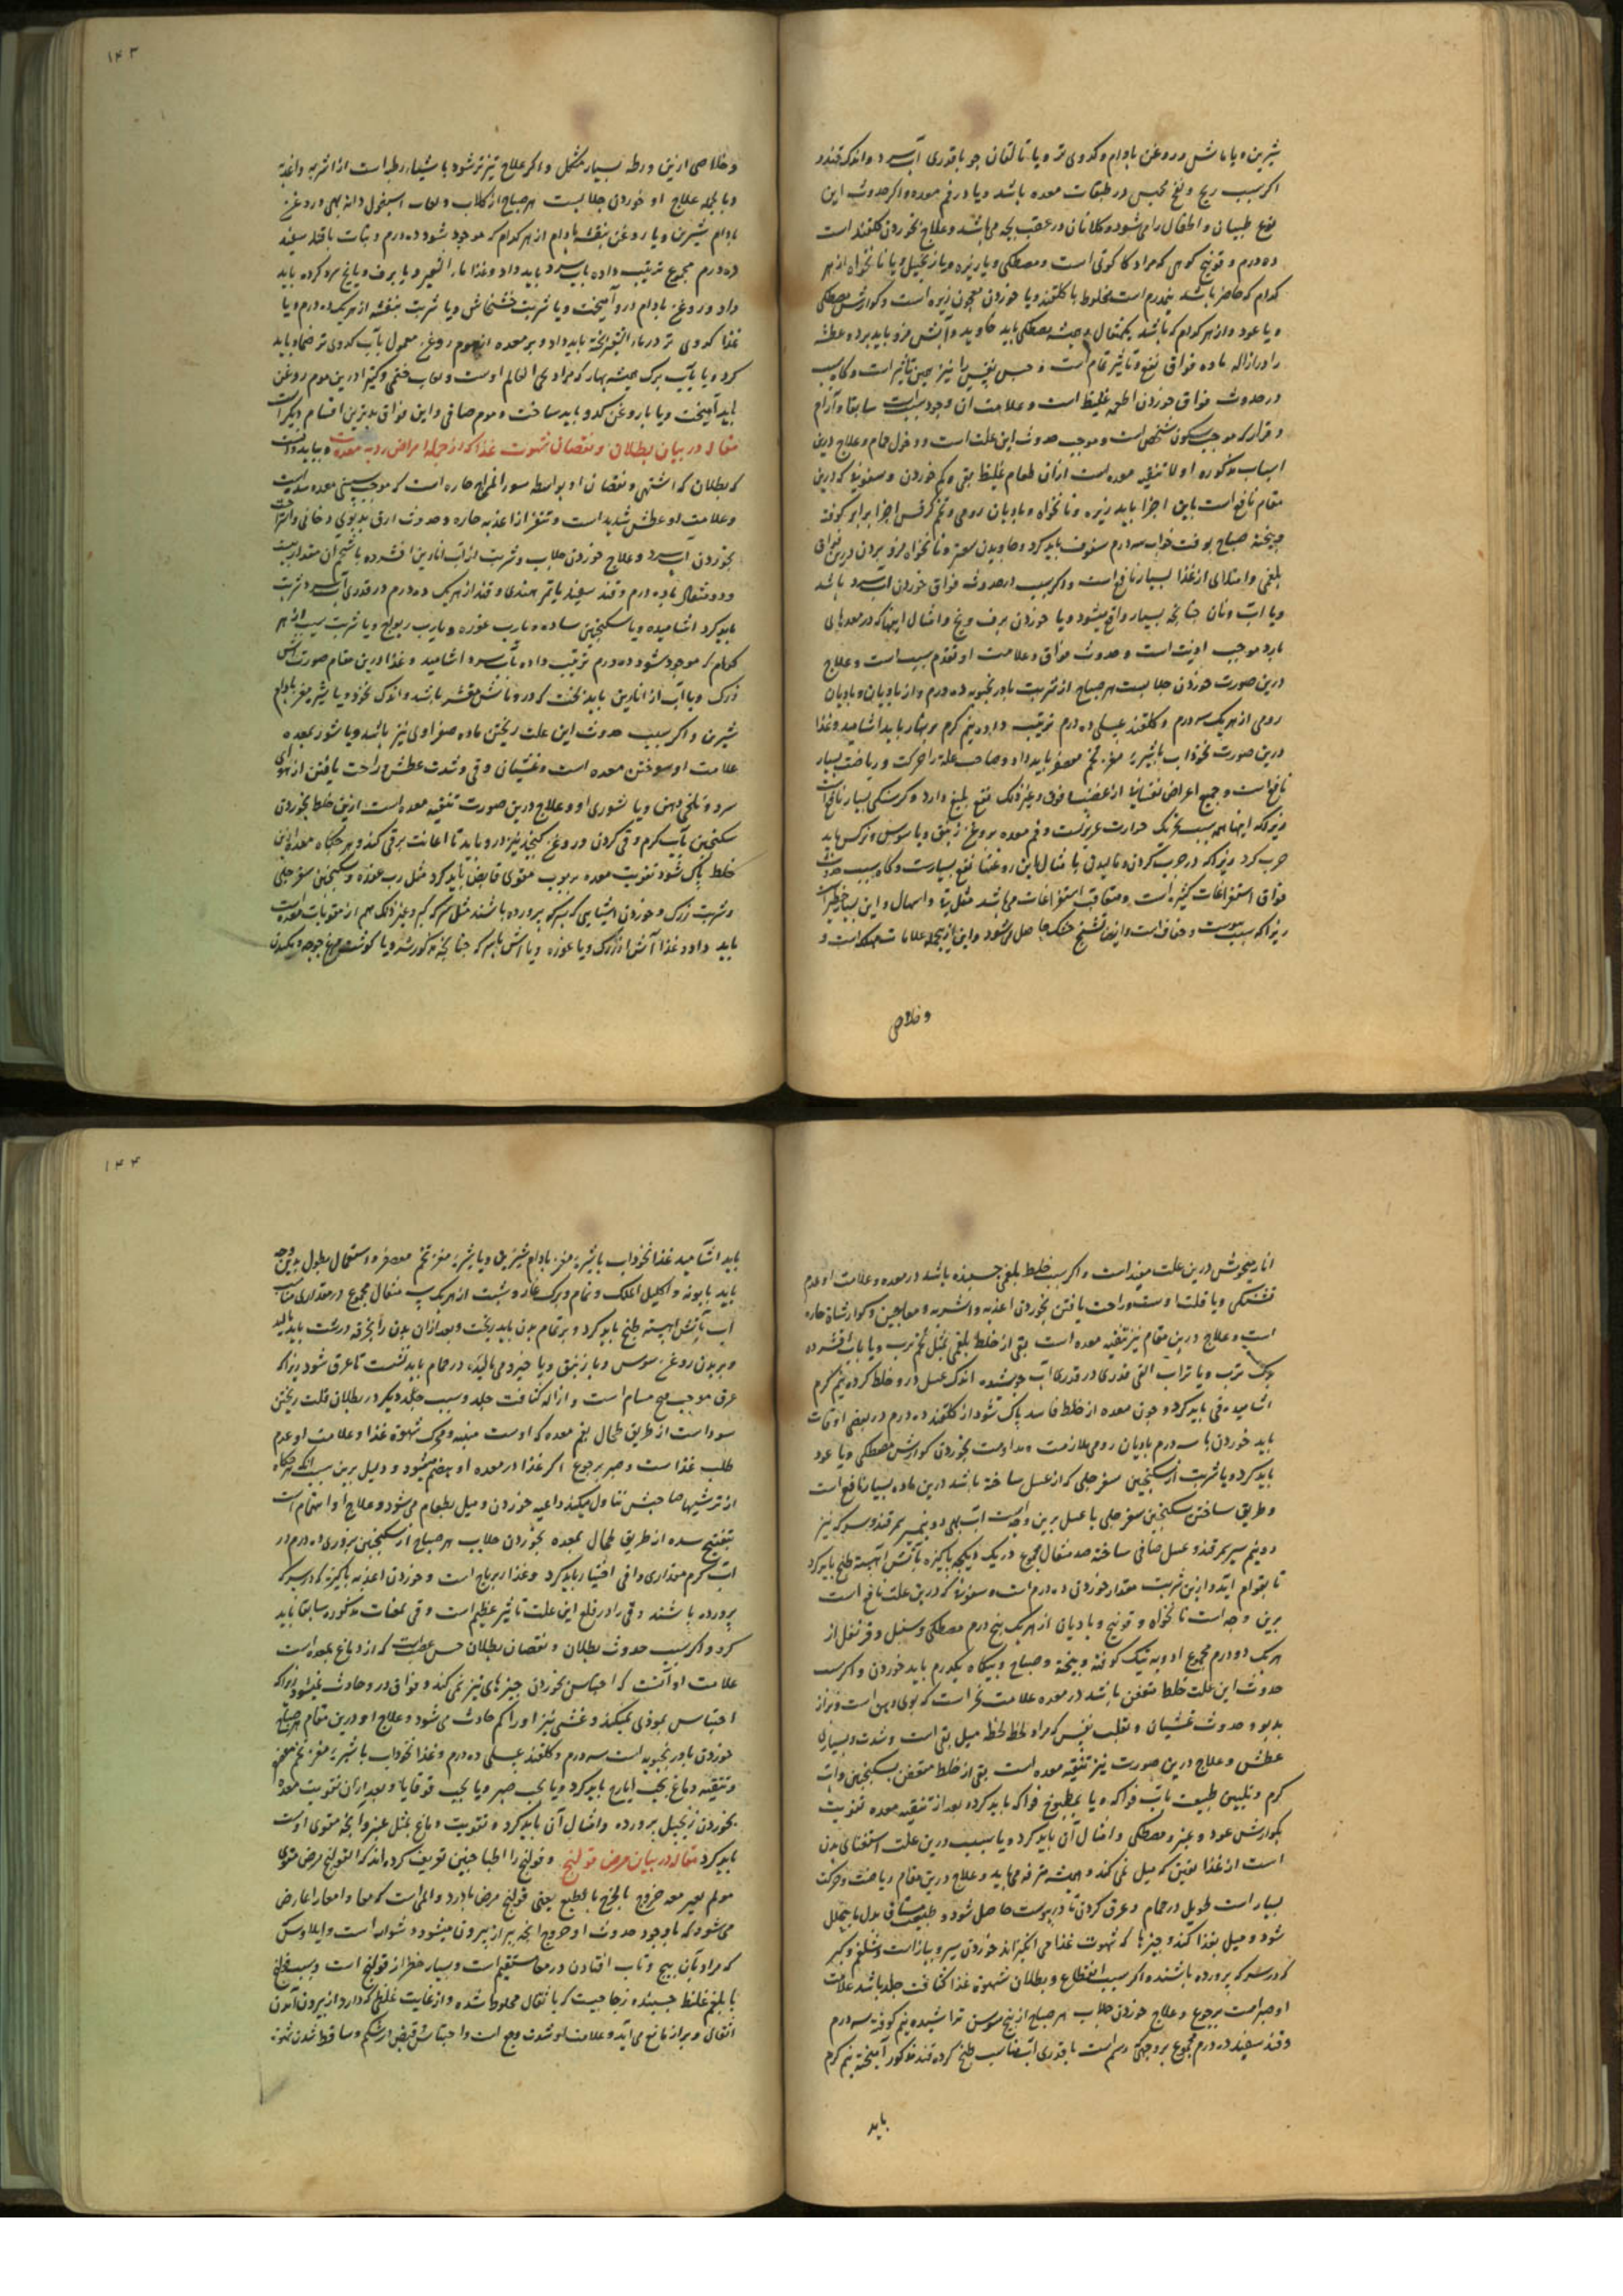 شیرین و یا ماش و روغن بادام و کدوی تر و یا تالقان جو با قدری آب سرد و اندک قند و
اگر سبب ریح و نفخ محتبس در طبقات معده باشد و یا در فم معده و اگر حدوث این
نوع طبیبان و اطفال را می شود و کلانان در عقب بچه می باشد و علاج بخوردن کلقند است
ده درم و فوتنج کوهی که مراد کاکوتی است و مصطکی و یا زیره و یا زنجبیل و یا نانخواه از هر
کدام که حاضر باشد نیمدرم است مخلوط با کلقند و یا خوردن معجون زیره است و کوارش مصطکی
و یا عود و از هر کدام که باشد یکمثقال و همیشه مصطکی باید خاوید و آبش فرو باید برد و عطسه
را در ازاله ماده فواق نفع و تاثیر تمام است و حبس نفس را نیز همین تاثیر است و کاه سبب
در حدوث فواق خوردن اطعمه غلیظ است و علامت آن وجود سبب است سابقا و آرام
و قرار که موجب سکون شخص است و موجب حدوث این علت است و دخول حمام و علاج درین
اسباب مذکوره اولا تنقیه معده است از آن طعام غلیظ بقی و کم خوردن و سفوفی که درین
مقام نافع است باین اجزا باید زیره و نانخواه و بادیان رومی و تخم کرفس اجزا برابر کوفته
و بیخته صباح بوقت خواب سه درم سفوف باید کرد و خاویدن سعتر و نانخواه فرو بردن درین فواق
بلغمی و امتلای از غذا بسیار نافع است و اگر سبب در حدوث فواق خوردن آب سرد باشد
و یا آب و نان چنانچه بسیار واقع میشود و یا خوردن برف و یخ و امثال اینها که در معدهای
بارد موجب اذیت است و حدوث فواق و علامت او تقدم سبب است و علاج
درین صورت خوردن جلابست هر صباح از شربت بادرنجبویه ده درم و از بادیان و بادیان
رومی از هر یک سه درم و کلقند عسلی ده درم ترتیب داده نیم گرم بر نهار باید اشامید و غذا
درین صورت نخوداب با شیره مغز تخم معصفر باید داد و صاحب علة را حرکت و ریاضت بسیار
نافع است و جمیع اعراض نفسانی از غضب و خوف و غیر ذلک نفع بلیغ دارد و گرسنگی بسیار نافع است
زیرا که اینها همه سبب تحریک حرارت غریزیست و فم معده بروغن زنبق و یا سوسن و نرکس باید
چرب کرد زیرا که در چرب کردن و مالیدن با مثال این روغنها نفع بسیارست و کاه سبب حدوث
فواق استفراغات کثیره است و متعاقب استفراغات می باشد مثل قی و اسهال و این بسیار خطیر است
زیرا که بسبب یبوست و جفاف است و ایضا تشنج خشک حاصل می شود و این از جمله علامات مهلکه است و
و خلاصی
۱۴۳
و خلاصی ازین ورطه بسیار مشکل و اگر علاج تیزتر شود با شیاء رطبه است از اشربه و اغذیه
و بالجمله علاج او خوردن جلابست هر صباح از کلاب و لعاب اسبغول و دانه بهی و روغن
بادام شیرین و یا روغن بنفشه بادام از هر کدام که موجود شود ده درم و نبات با قند سفید
ده درم مجموع ترتیب داده بآب سرد باید داد و غذا ماء الشعیر و یا برف و یا یخ سرد کرده باید
داد و روغن بادام درو آمیخت و یا شربت خشخاش و یا شربت بنفشه از هر یک ده درم و یا
غذا کدوی تر در ماء الشعیر پخته باید داد و بر معده از موم روغن معمول بآب کدوی تر ضماد باید
کرد و یا بآب برک همیشه بهار که مراد حی العالم اوست و لعاب خطمی و کتیرا درین موم روغن
باید آمیخت و یا با روغن کدو باید ساخت و موم صافی و این فواق بدترین اقسام دیگر است
مقاله در بیان بطلان و نقصان شهوت غذا که از جمله امراض ردیه معده است و بباید دانست
که بطلان که اشتهی و نقصان او بواسطه سوء المزاج حاره است که موجب سستی معده شدست
و علامت او عطش شدید است و تنفر از اغذیه حاره و حدوث ارق بدبوی دخانی و راحت
بخوردن آب سرد و علاج خوردن جلاب و شربت از آب انارین افشرده با شحم آن مقدار بیست
و دو مثقال تا ده درم و قند سفید یا تمر هندی و قند از هر یک ده درم در قدری آب سرد شربت
باید کرد اشامیده و یا سکنجبین ساده و یا رب غوره و یا رب ریواج و یا شربت سیب از هر
کدام که موجود شود ده درم ترتیب داده بآب سرد اشامید و غذا درین مقام صورت آش
زرک و یا آب از انارین باید پخت که در و ماش مقشر باشد و اندک نخود و یا شیر مغز بادام
شیرین و اگر سبب حدوث این علت ریختن ماده صفراوی نیز باشد و یا شور بمعده
علامت او سوختن معده است و غثیان و قی و شدت عطش و راحت یافتن از هوای
سرد و تلخی دهن و یا شوری او و علاج درین صورت تنقیه معده است ازین خلط بخوردن
سکنجبین بآب گرم و قی کردن و روغن کنجد نیز درو باید تا اعانت بر قی کند و هر گاه معده ازین
خلط پاک شود تقویت معده بربوب مقوی قابض باید کرد مثل رب غوره و سکنجبین سفرجلی
و شربت زرک و خوردن اشیایی که بسرکه پرورده باشند مثل سرکه کبر و غیر ذلک هم از مقویات معده است
باید داد و غذا آش از زرک و یا غوره و یا آش ماهر که چنانچه مذکور شد و یا کوشت مرغ جوجه و یکدن
انار میخوش درین علت مفید است و اگر سبب خلط بلغمی چسپنده باشد در معده و علامت او عدم
تشنگی و یا قلت اوست و راحت یافتن بخوردن اغذیه و اشربه و معاجین و کوارشات حاره
است و علاج درین مقام نیز تنقیه معده است بقی از خلط بلغمی بمثل تخم ترب و یا بآب افشرده
برک ترب و یا ترب القی قدری در قدری آب جوشنده اندک عسل درو خلط کرده نیم گرم
اشامیده قی باید کرد و چون معده از خلط فاسد پاک شود از کلقند ده درم در بعضی اوقات
باید خوردن با سه درم بادیان رومی ملازمت و مداومت بخوردن کوارش مصطکی و یا عود
باید کرد و یا شربت از سکنجبین سفرجلی که از عسل ساخته باشد درین ماده بسیار نافع است
و طریق ساختن سکنجبین سفرجلی با عسل برین وجه است آب بهی دو نیم سیر سمرقند و سرکه نیز
دو نیم سیر سمرقند و عسل صافی ساخته صد مثقال مجموع در یک دیکچه پاکیزه بآتش آهسته طبخ باید کرد
تا بقوام آید و ازین شربت مقدار خوردن ده درم است و سفوفی که درین علت نافع است
برین وجه است نانخواه و فوتنج و بادیان از هر یک پنج درم مصطکی و سنبل و قرنفل از
هر یک دو درم مجموع ادویه نیک کوفته و بیخته و صباح و بیکاه یکدرم باید خوردن و اگر سبب
حدوث این علت خلط متعفن باشد در معده علامت بخر است که بوی دهن است و براز
بدبو و حدوث غثیان و تقلب نفس که مراد لحظه لحظه میل بقی است و شدت و بسیاری
عطش و علاج درین صورت نیز تنقیه معده است بقی از خلط متعفن بسکنجبین و آب
گرم و تلیین طبیعت بآب فواکه و یا بمطبوخ فواکه باید کرد و بعد از تنقیه معده تقویت
بکوارش عود و عنبر و مصطکی و امثال آن باید کرد و یا سبب درین علت استغنای بدن
است از غذا بعینی که میل نمی کند و همیشه مترفه می باید و علاج درین مقام ریاضت و حرکت
بسیار است طویل در حمام و عرق کردن تا در پوست حاصل شود و طبیعت مشتاق بدل ما یتحلل
شود و میل بغذا کند و چیزها که شهوت غذا می انکیزاند خوردن سیر و پیاز است و شلغم و کبر
که در سرکه پرورده باشند و اگر سبب انقطاع و بطلان شهوة غذا کثافت جلد باشد علامت
او صبر است بر جوع و علاج خوردن جلاب هر صباح از بیخ سوسن تراشیده نیم کوفته سه درم
و قند سفید ده درم مجموع بروجهی که رسم است با قدری آب مناسب طبخ کرده قند مذکور آمیخته نیم گرم
باید
۱۴۴
باید اشامید غذا نخوداب با شیره مغز بادام شیرین و یا شیره مغز تخم معصفر و استعمال نطول بدین وجه
باید بابونه و اکلیل الملک و نمام و برک غار و شبت از هر یک سی مثقال مجموع در مقداری مناسب
آب بآتش آهسته طبخ باید کرد و بر تمام بدن باید ریخت و بعد از آن بدن را بخرقه درشت باید مالید
و بر بدن روغن سوسن و یا زنبق و یا خیرو می مالیده در حمام باید نشست تا عرق شود زیرا که
عرق موجب فتح مسام است و ازاله کثافت جلد و سبب جلد دیگر در بطلان قلت ریختن
سوداست از طریق طحال بفم معده که اوست منبه و محرک شهوة غذا و علامت او عدم
طلب غذاست و صبر بر جوع اگر غذا در معده او هضم میشود و دلیل برین سبب آنکه هر گاه
از ترشیها صاحبش تناول میکند داعیه خوردن و میل بطعام می شود و علاج او اهتمام است
بتفتیح سده از طریق طحال بمعده بخوردن جلاب هر صباح از سکنجبین بزوری ده درم در
آب گرم مقداری وافی اختیار باید کرد و غذا زیرباج است و خوردن اغذیه پاکیزه که در سرکه
پرورده باشند و قی را در قلع این علت تاثیر عظیم است و قی بمعفات مذکوره سابقا باید
کرد و اگر سبب حدوث بطلان و نقصان بطلان حس عصبی است که از دماغ بمعده است
علامت او آنست که احتباس بخوردن چیزهای تیز نمی کند و فواق درو حادث نمیشود زیرا که
احتباس بموذی نمیکند و غشی نیز او را کم حادث می شود و علاج او درین مقام هر صباح
خوردن بادرنجبویه است سه درم و کلقند عسلی ده درم و غذا نخوداب با شیره مغز تخم معصفر
و تنقیه دماغ بحب ایارج باید کرد و یا بحب صبر و یا بحب قوقایا و بعد از آن تقویت معده
بخوردن زنجبیل پرورده و امثال آن باید کرد و تقویت دماغ بمثل عنبر و آنچه مقوی اوست
باید کرد مقاله در بیان مرض قولنج و قولنج را اطبا چنین تعریف کرده اند که القولنج مرض معوی
مولم یعسر معه خروج ما یخرج بالطبع یعنی قولنج مرض با درد و المی است که معا و امعا را عارض
می شود که باوجود حدوث او خروج آنچه براز بیرون میشود دشوار است و ایلاوس
که مراد بآن پیچ و تاب افتادن در معا مستقیم است و بسیار خطر از قولنج است و سبب قولنج
یا بلغم غلیظ چسپنده زجاجیست که با ثفال مخلوط شده و از غایت غلظی که دارد از بیرون آمدن
اثفال و براز مانع می آید و علامت او شدت وجع است و احتباس و قبض از شکم و ساقط شدن شهوة